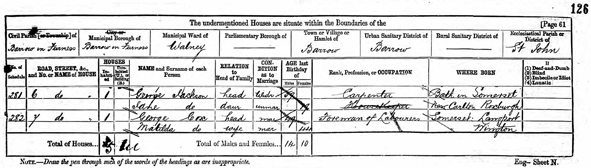 126
The undermentioned Houses are situate within the Boundaries of the
[Page 61
Civil Parish [or Township] of
Barrow in Furness
City or
Municipal Borough of
Barrow in Furness
Municipal Ward of
Walney
Parliamentary Borough of
Town or Village or
Hamlet of
Barrow
Urban Sanitary District of
Barrow
Rural Sanitary District of
Ecclesiastical Parish or
District of
St John
No. of
Schedule
ROAD, STREET, &c.,
and No. or NAME of HOUSE
HOUSES
NAME and Surname of each
Person
RELATION
to
Head of Family
CON-
DITION
as to
Marriage
AGE last
Birthday
of
Rank, Profession, or OCCUPATION
WHERE BORN
If
(1) Deaf-and-Dumb
(2) Blind
(3) Imbecile or Idiot
(4) Lunatic
281 6 do 1 George head Carpenter Bath in Somerset
Jane do daur unmar
282 7 do 1 George Cox head mar Foreman of Labourers Somerset Langport
Matilda do wife mar
Total of Houses... Total of Males and Females.. 14 10
NOTE.—Draw the pen through such of the words of the headings as are inappropriate.
Eng—Sheet N.